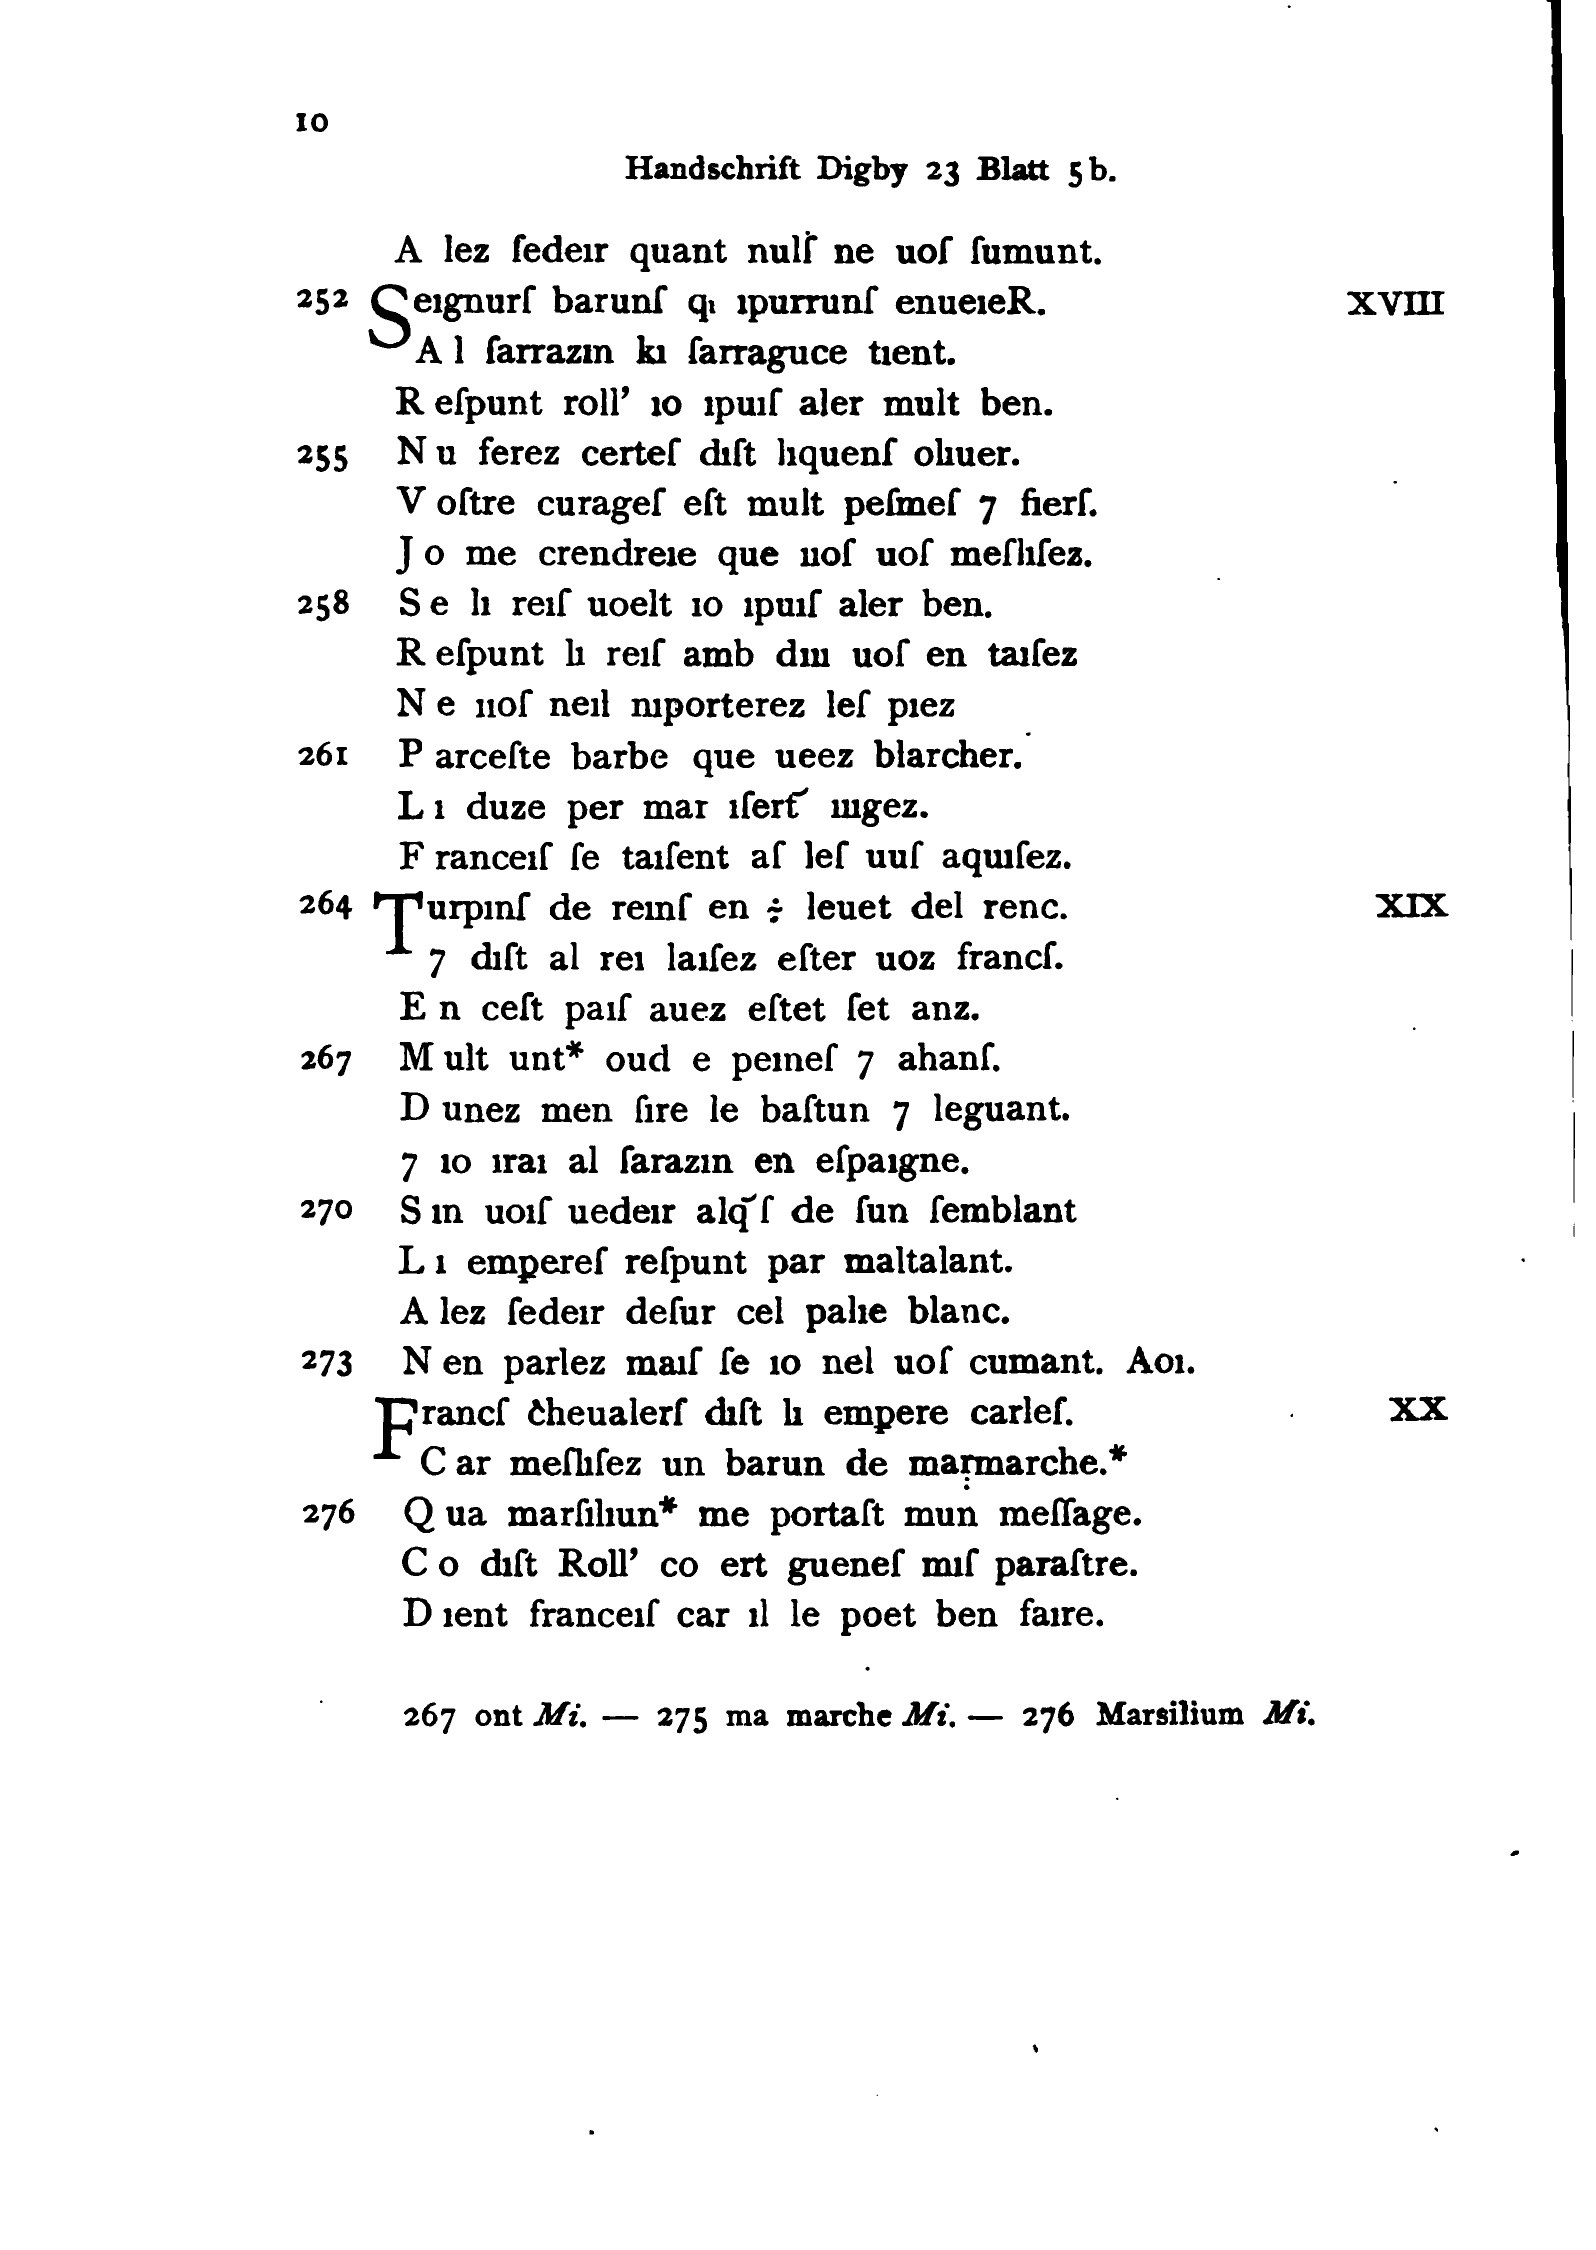 10
Handschrift Digby 23 Blatt 5 b.
A lez ſedeır quant nulẛ ne uoſ ſumunt.
252 Seıgnurſ barunſ qı ıpurrunſ enueıeR. XVIII
A l ſarrazın kı ſarraguce tıent.
R eſpunt roll’ ıo ıpuıſ aler mult ben.
255 N u ferez certeſ dıſt lıquenſ olıuer.
V oſtre curageſ eſt mult peſmeſ 7 fierſ.
J o me crendreıe que uoſ uoſ meſlıſez.
258 S e lı reıſ uoelt ıo ıpuıſ aler ben.
R eſpunt lı reıſ amb dııı uoſ en taıſez
N e uoſ neıl nıporterez leſ pıez
261 P arceſte barbe que ueez blarcher.
L ı duze per mar ıſerť ıugez.
F ranceıſ ſe taıſent aſ leſ uuſ aquıſez.
264 Turpınſ de reınſ en ÷ leuet del renc. XIX
7 dıſt al reı laıſez eſter uoz francſ.
E n ceſt païſ auez eſtet ſet anz.
267 M ult unt* oud e peıneſ 7 ahanſ.
D unez men ſıre le baſtun 7 leguant.
7 ıo ıraı al ſarazın en eſpaıgne.
270 S ın uoıſ uedeır alq̄ſ de ſun ſemblant
L ı empereſ reſpunt par maltalant.
A lez ſedeır deſur cel palıe blanc.
273 N en parlez maıſ ſe ıo nel uoſ cumant. Aoı.
Francſ c̄heualerſ dıſt lı empere carleſ. XX
C ar meſlıſez un barun de maṛmarche.*
276 Q ua marſılıun* me portaſt mun meſſage.
C o dıſt Roll’ co ert gueneſ mıſ paraſtre.
D ıent franceıſ car ıl le poet ben faıre.
267 ont Mi. — 275 ma marche Mi. — 276 Marsilium Mi.